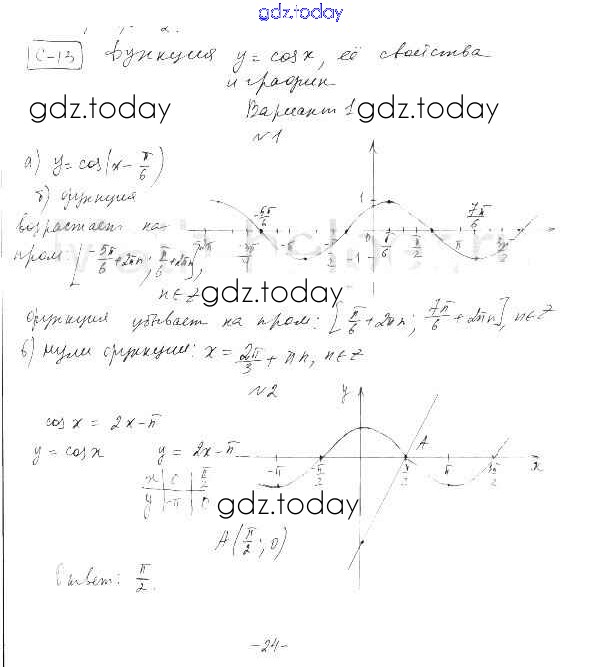 gdz.today
С-13 Функция y = cos x, её свойства
и график
gdz.today gdz.today
Вариант 1
№1
а) y = cos(x - π/6)
б) функция
возрастает на
пром: [-5π/6 + 2πn; π/6 + 2πn],
n ∈ Z
1
-5π/6 7π/6
0 π/6
-1
gdz.today
функция убывает на пром: [π/6 + 2πn; 7π/6 + 2πn], n ∈ Z
в) нули функции: x = 2π/3 + πn, n ∈ Z
№2
cos x = 2x - π
y = cos x y = 2x - π
x | 0 | π/2
y | -π | 0
y
A
-π -π/2 π/2 π 3π/2 x
gdz.today
A(π/2; 0)
Ответ: π/2.
-24-